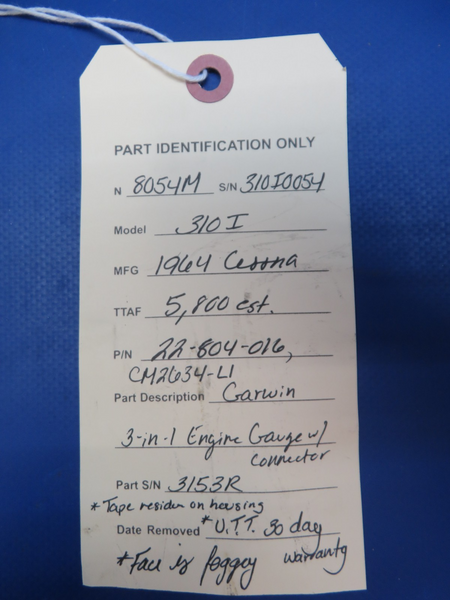 PART IDENTIFICATION ONLY
N 8054M S/N 310I0054
Model 310 I
MFG 1964 Cessna
TTAF 5,800 est.
P/N 22-804-016,
CM2634-L1
Part Description Garwin
3-in-1 Engine Gauge w/
connector
Part S/N 3153R
*Tape residue on housing
Date Removed *U.T.T. 30 day
warranty
*Face is foggy